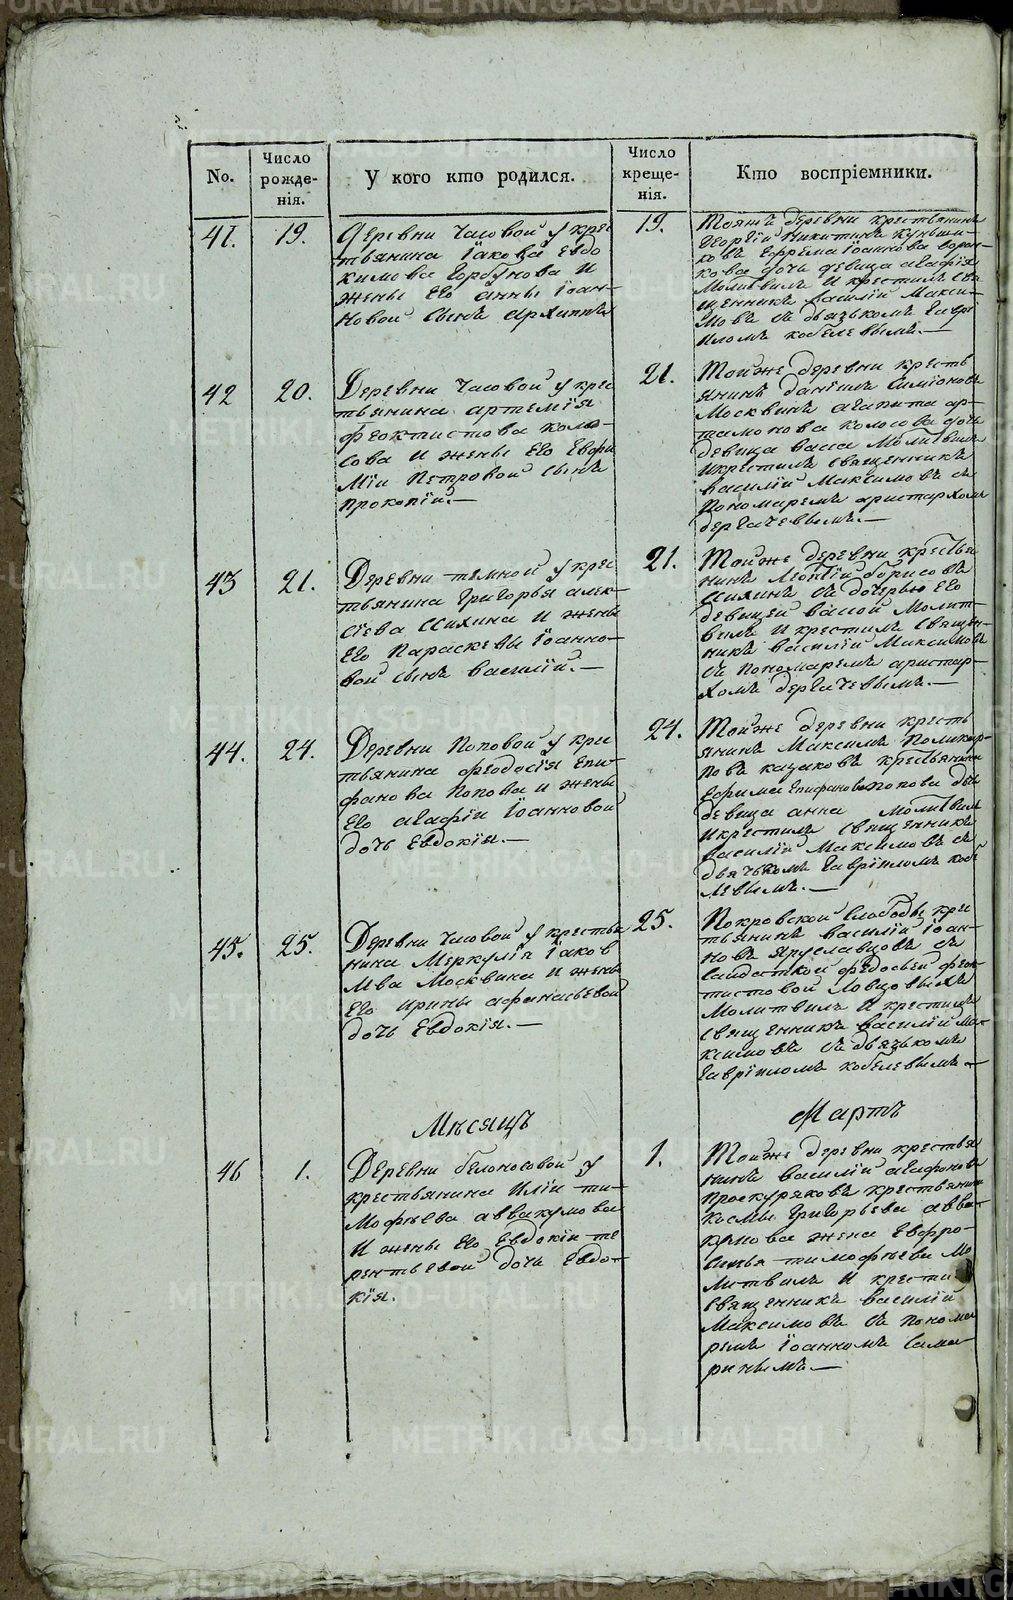 No.
Число рожде-нія.
У кого кто родился.
Число креще-нія.
Кто воспріемники.
41.
19.
Деревни Часовой у крес
тьянина Іакова Евдо
кимова Горбунова и
жены его Анны Іоан-
новой сынъ Архиппъ
19.
Тояжъ деревни крестьянинъ
Георгій Никитинъ
Ефрема Іоаннова
дочь девица Агафія
Молитвилъ и крестилъ свя
щенникъ Василій Макси-
мовъ съ дьячькомъ Гаврі
иломъ Кобелевымъ.—
42
20.
Деревни Часовой у крес
тьянина Артемія
Феоктистова Коло-
сова и жены его Евфи
міи Петровой сынъ
Прокопій.—
21.
Тойже деревни кресть
янинъ Даніилъ Симіоновъ
Москвинъ Агапита Ар-
тамонова Колосова дочь
девица Васса Молитвилъ
и крестилъ священникъ
Василій Максимовъ съ
пономаремъ Аристархомъ
Дергачевымъ.—
43
21.
Деревни Темной у крес
тьянина Григорья Алек-
сіева и жены
его Параскевы Іоанно-
вой сынъ Василій.—
21.
Тойже деревни крестья
нинъ Леонтій Борисовъ
съ дочерью его
девицей Вассой Молит-
вилъ и крестилъ священ-
никъ Василій Максимовъ
съ пономаремъ Аристар-
хомъ Дергачевымъ.—
44.
24.
Деревни Поповой у крес
тьянина Феодосія Епи-
фанова Попова и жены
его Агафіи Іоанновой
дочь Евдокія.—
24.
Тойже деревни кресть
янинъ Максимъ Поликар-
повъ Казаковъ крестьянина
Ефима Епифанова Попова дочь
девица Анна Молитвилъ
и крестилъ священникъ
Василій Максимовъ съ
дьячькомъ Гавріиломъ Кобе
левымъ.—
45.
25.
Деревни Часовой у крестья
нина Меркулія Іаков
лева Москвина и жены
его Ирины Афанасьевой
дочь Евдокія.—
25.
Покровской Слободы кре
стьянинъ Василій Іоан-
новъ Ярославцовъ съ
Салдаткой Федосьей Феок
тистовой
Молитвилъ и крестилъ
священникъ Василій Ма-
ксимовъ съ дьячькомъ
Гавріиломъ Кобелевымъ.—
Мѣсяцъ
Мартъ
46
1.
Деревни Белоносовой у
крестьянина Иліи Ти-
мофѣева Аввакумова
и жены его Евдокіи Те
рентьевой дочь Евдо-
кія.
1.
Тойже деревни крестья
нинъ Василій Агафоновъ
Проскуряковъ крестьянина
Космы Григорьева Авва-
кумова жена Евфро-
синья Тимофѣева Мо
литвилъ и крести
священникъ Василій
Максимовъ съ понома
ремъ Іоанномъ Сама
ринымъ.—
METRIKI.GASO-URAL.RU